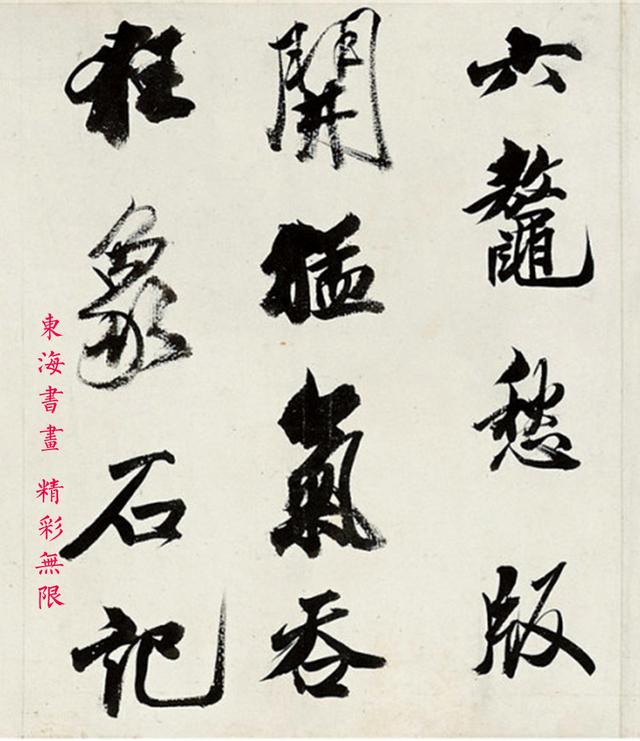 六鼇愁版
開猛氣吞
狂象石記
東海書畫 精彩無限